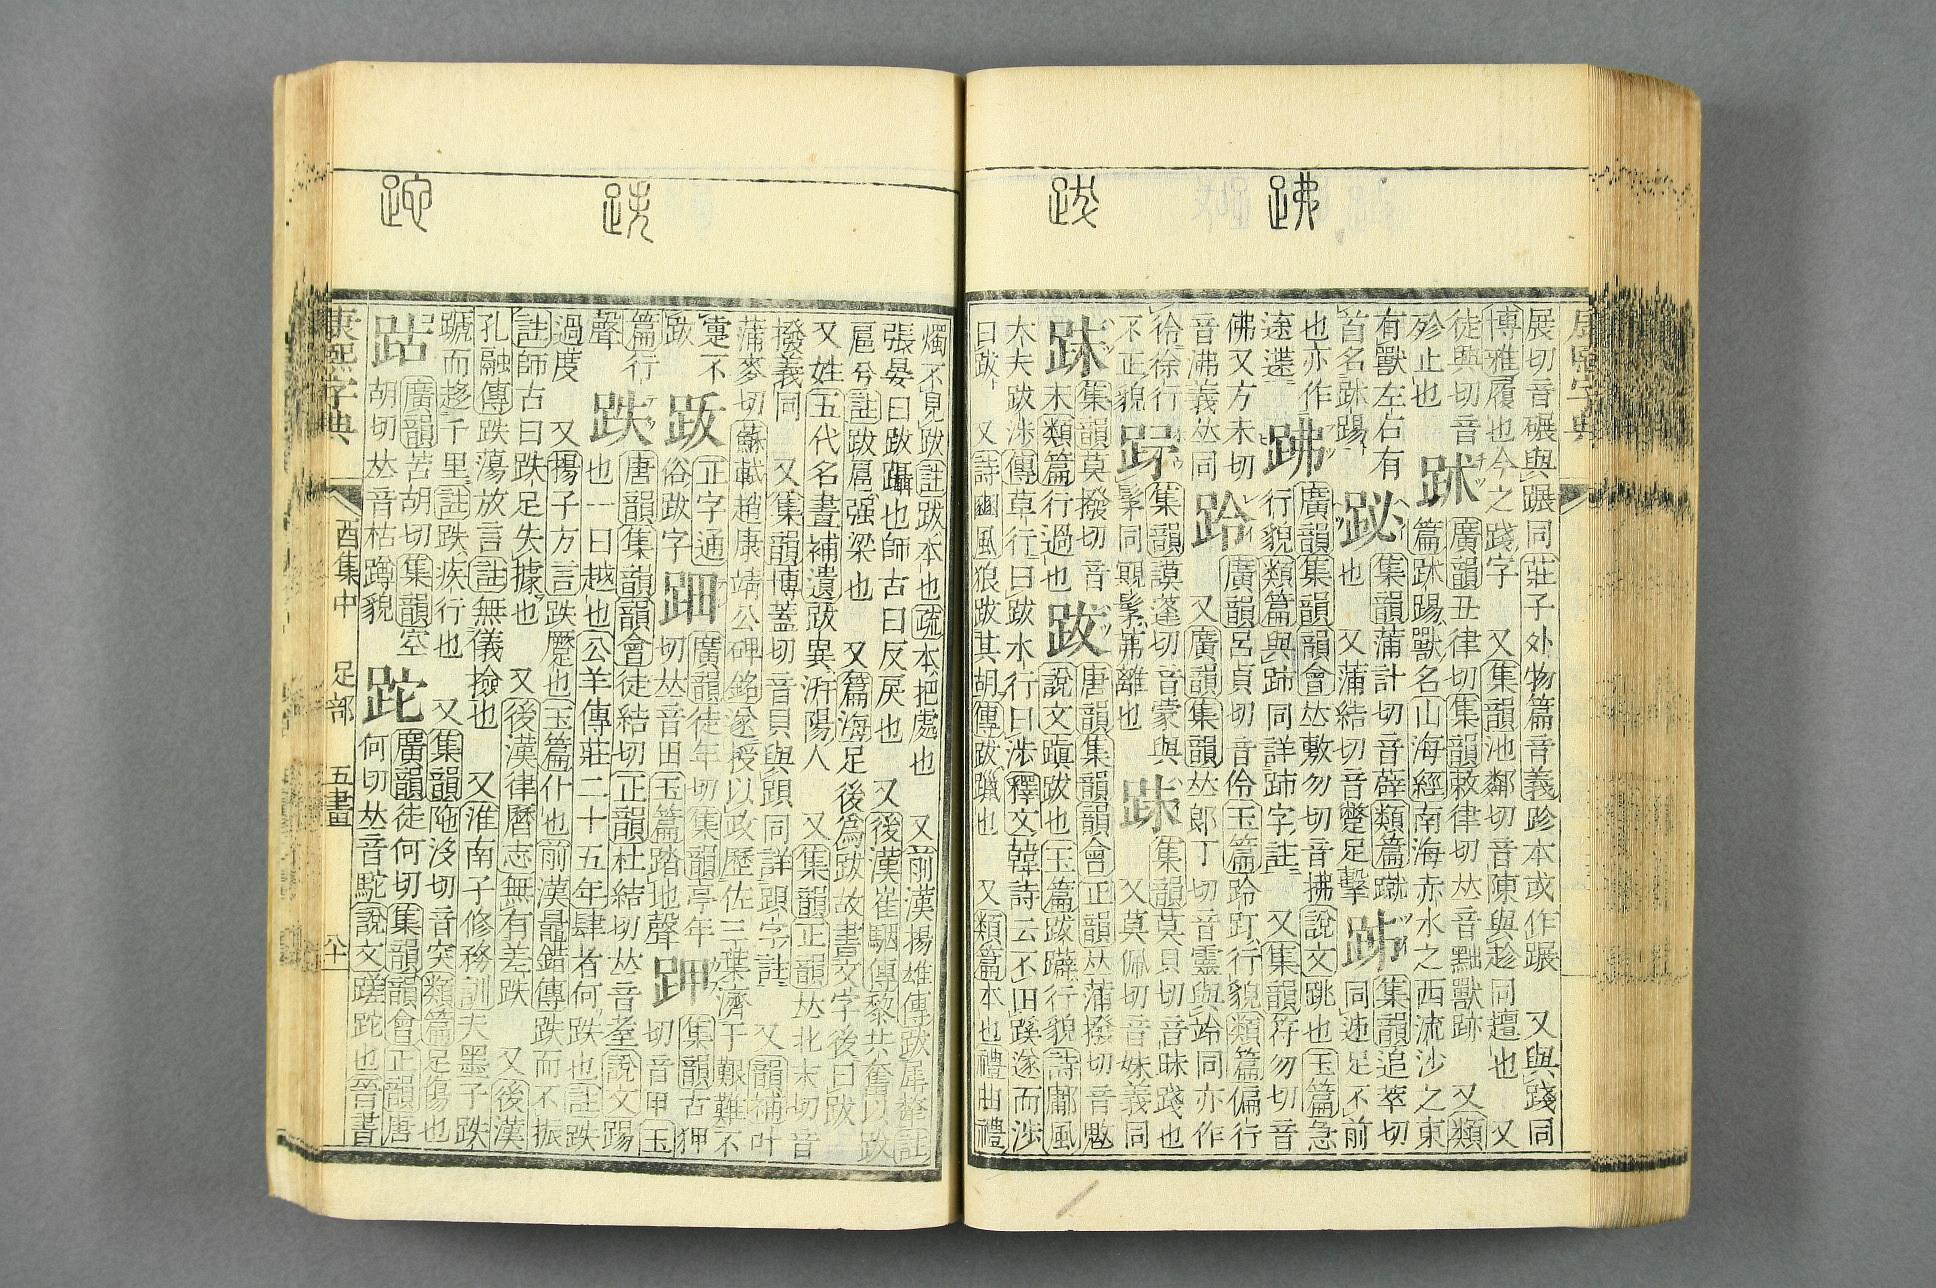 展切音碾與蹍同莊子外物篇音義跈本或作蹍 又與踐同
博雅履也今之踐字 又集韻池鄰切音陳與趁同 也 又
徒典切音 䟣 廣韻丑律切集韻敕律切𠀤音黜獸跡 又類
殄止也 篇䟣踢獸名山海經南海赤水之西流沙之東
有獸左右有 䟤 集韻蒲計切音薜類篇蹴 集韻追萃切
首名䟣踢 也 又蒲結切音蹩足擊 同速足不前
也亦作 䟦 廣韻集韻韻會𠀤敷勿切音拂說文跳也玉篇急
行貌類篇與 同詳 字註 又集韻符勿切音
佛又方未切 跉 廣韻呂貞切音伶玉篇跉 行貌類篇偏行
音沸義𠀤同 又廣韻集韻𠀤郎丁切音靈與竛同亦作
彾徐行 集韻謨蓬切音蒙與 跊 集韻莫貝切音昧踐也
不正貌 髳同 髳茀離也 又莫佩切音妹義同
集韻莫撥切音 跋 唐韻集韻韻會正韻𠀤蒲撥切音魃
末類篇行過也 說文蹎跋也玉篇跋躃行貌詩鄘風
大夫跋涉傳草行曰跋水行曰涉釋文韓詩云不由蹊遂而涉
曰跋 又詩豳風狼跋其胡傳跋躐也 又類篇本也禮曲禮
燭不見跋註跋本也疏本把處也 又前漢揚雄傳跋犀犛註
張晏曰跋躡也師古曰反戾也 又後漢崔駰傳黎共奮以跋
扈兮註跋扈强梁也 又篇海足後爲跋故書文字後曰跋
又姓五代名畫補遺跋異汧陽人 又集韻正韻𠀤北末切音
撥義同 又集韻博蓋切音貝與 同詳 字註 又韻補叶
蒲麥切蘇軾趙康靖公碑銘遂授以政歷佐三葉濟于艱難不
疐不 正字通 廣韻徒年切集韻亭年 集韻古狎
跋 俗跋字 切𠀤音田玉篇踏地聲 切音甲玉
篇行 跌 唐韻集韻韻會徒結切正韻杜結切𠀤音耋說文踼
聲 也一曰越也公羊傳莊二十五年肆者何跌也註跌
過度 又揚子方言跌蹷也玉篇仆也前漢鼂錯傳跌而不振
註師古曰跌足失據也 又後漢律曆志無有差跌 又後漢
孔融傳跌蕩放言註無儀檢也 又淮南子修務訓夫墨子跌
蹏而趍千里註跌疾行也 又集韻陁沒切音突類篇足傷也
跍 廣韻苦胡切集韻空 跎 廣韻徒何切集韻韻會正韻唐
胡切𠀤音枯蹲貌 何切𠀤音駝說文蹉跎也晉書
康熙字典 酉集中 足部 五畫